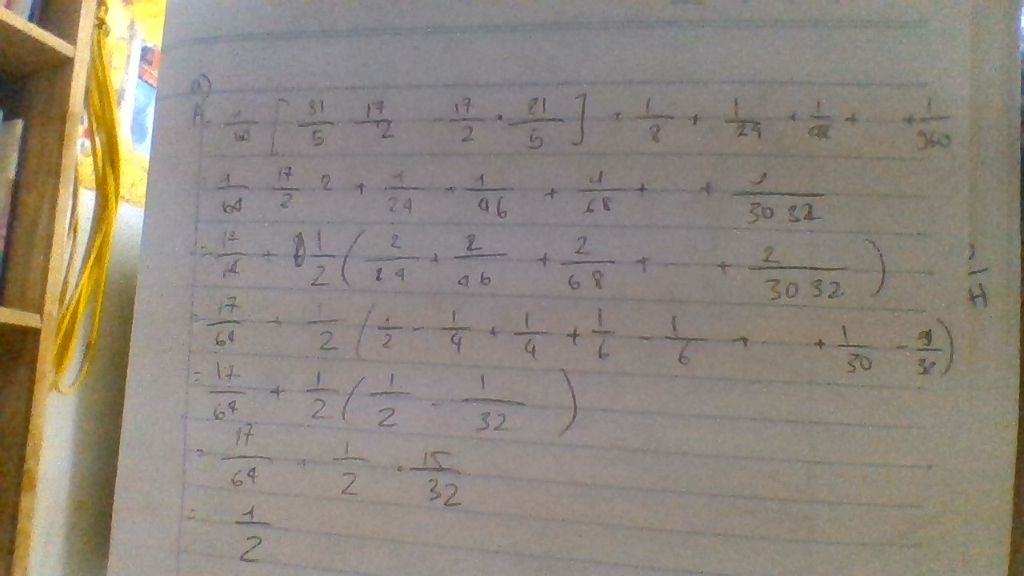 a)
A = 1/64 [ 31/5 · 17/2 - 17/2 · 21/5 ] + 1/8 + 1/24 + 1/48 + + 1/960
= 1/64 · 17/2 · 2 + 1/24 + 1/46 + 1/68 + + 1/30 32
= 17/64 + 1/2 ( 2/24 + 2/46 + 2/68 + + 2/30 32 )
= 17/64 + 1/2 ( 1/2 - 1/4 + 1/4 + 1/6 - 1/6 + + 1/30 - 1/32 )
= 17/64 + 1/2 ( 1/2 - 1/32 )
= 17/64 + 1/2 · 15/32
= 1/2